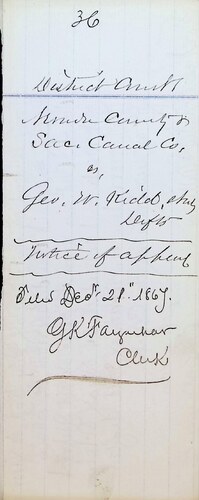 36
District Court
County &
Sac. Canal Co,
vs,
Geo. W. Kidd,
Defts
Notice of appeal
Filed Decr 21" 1867.
GK Farquhar
Clerk